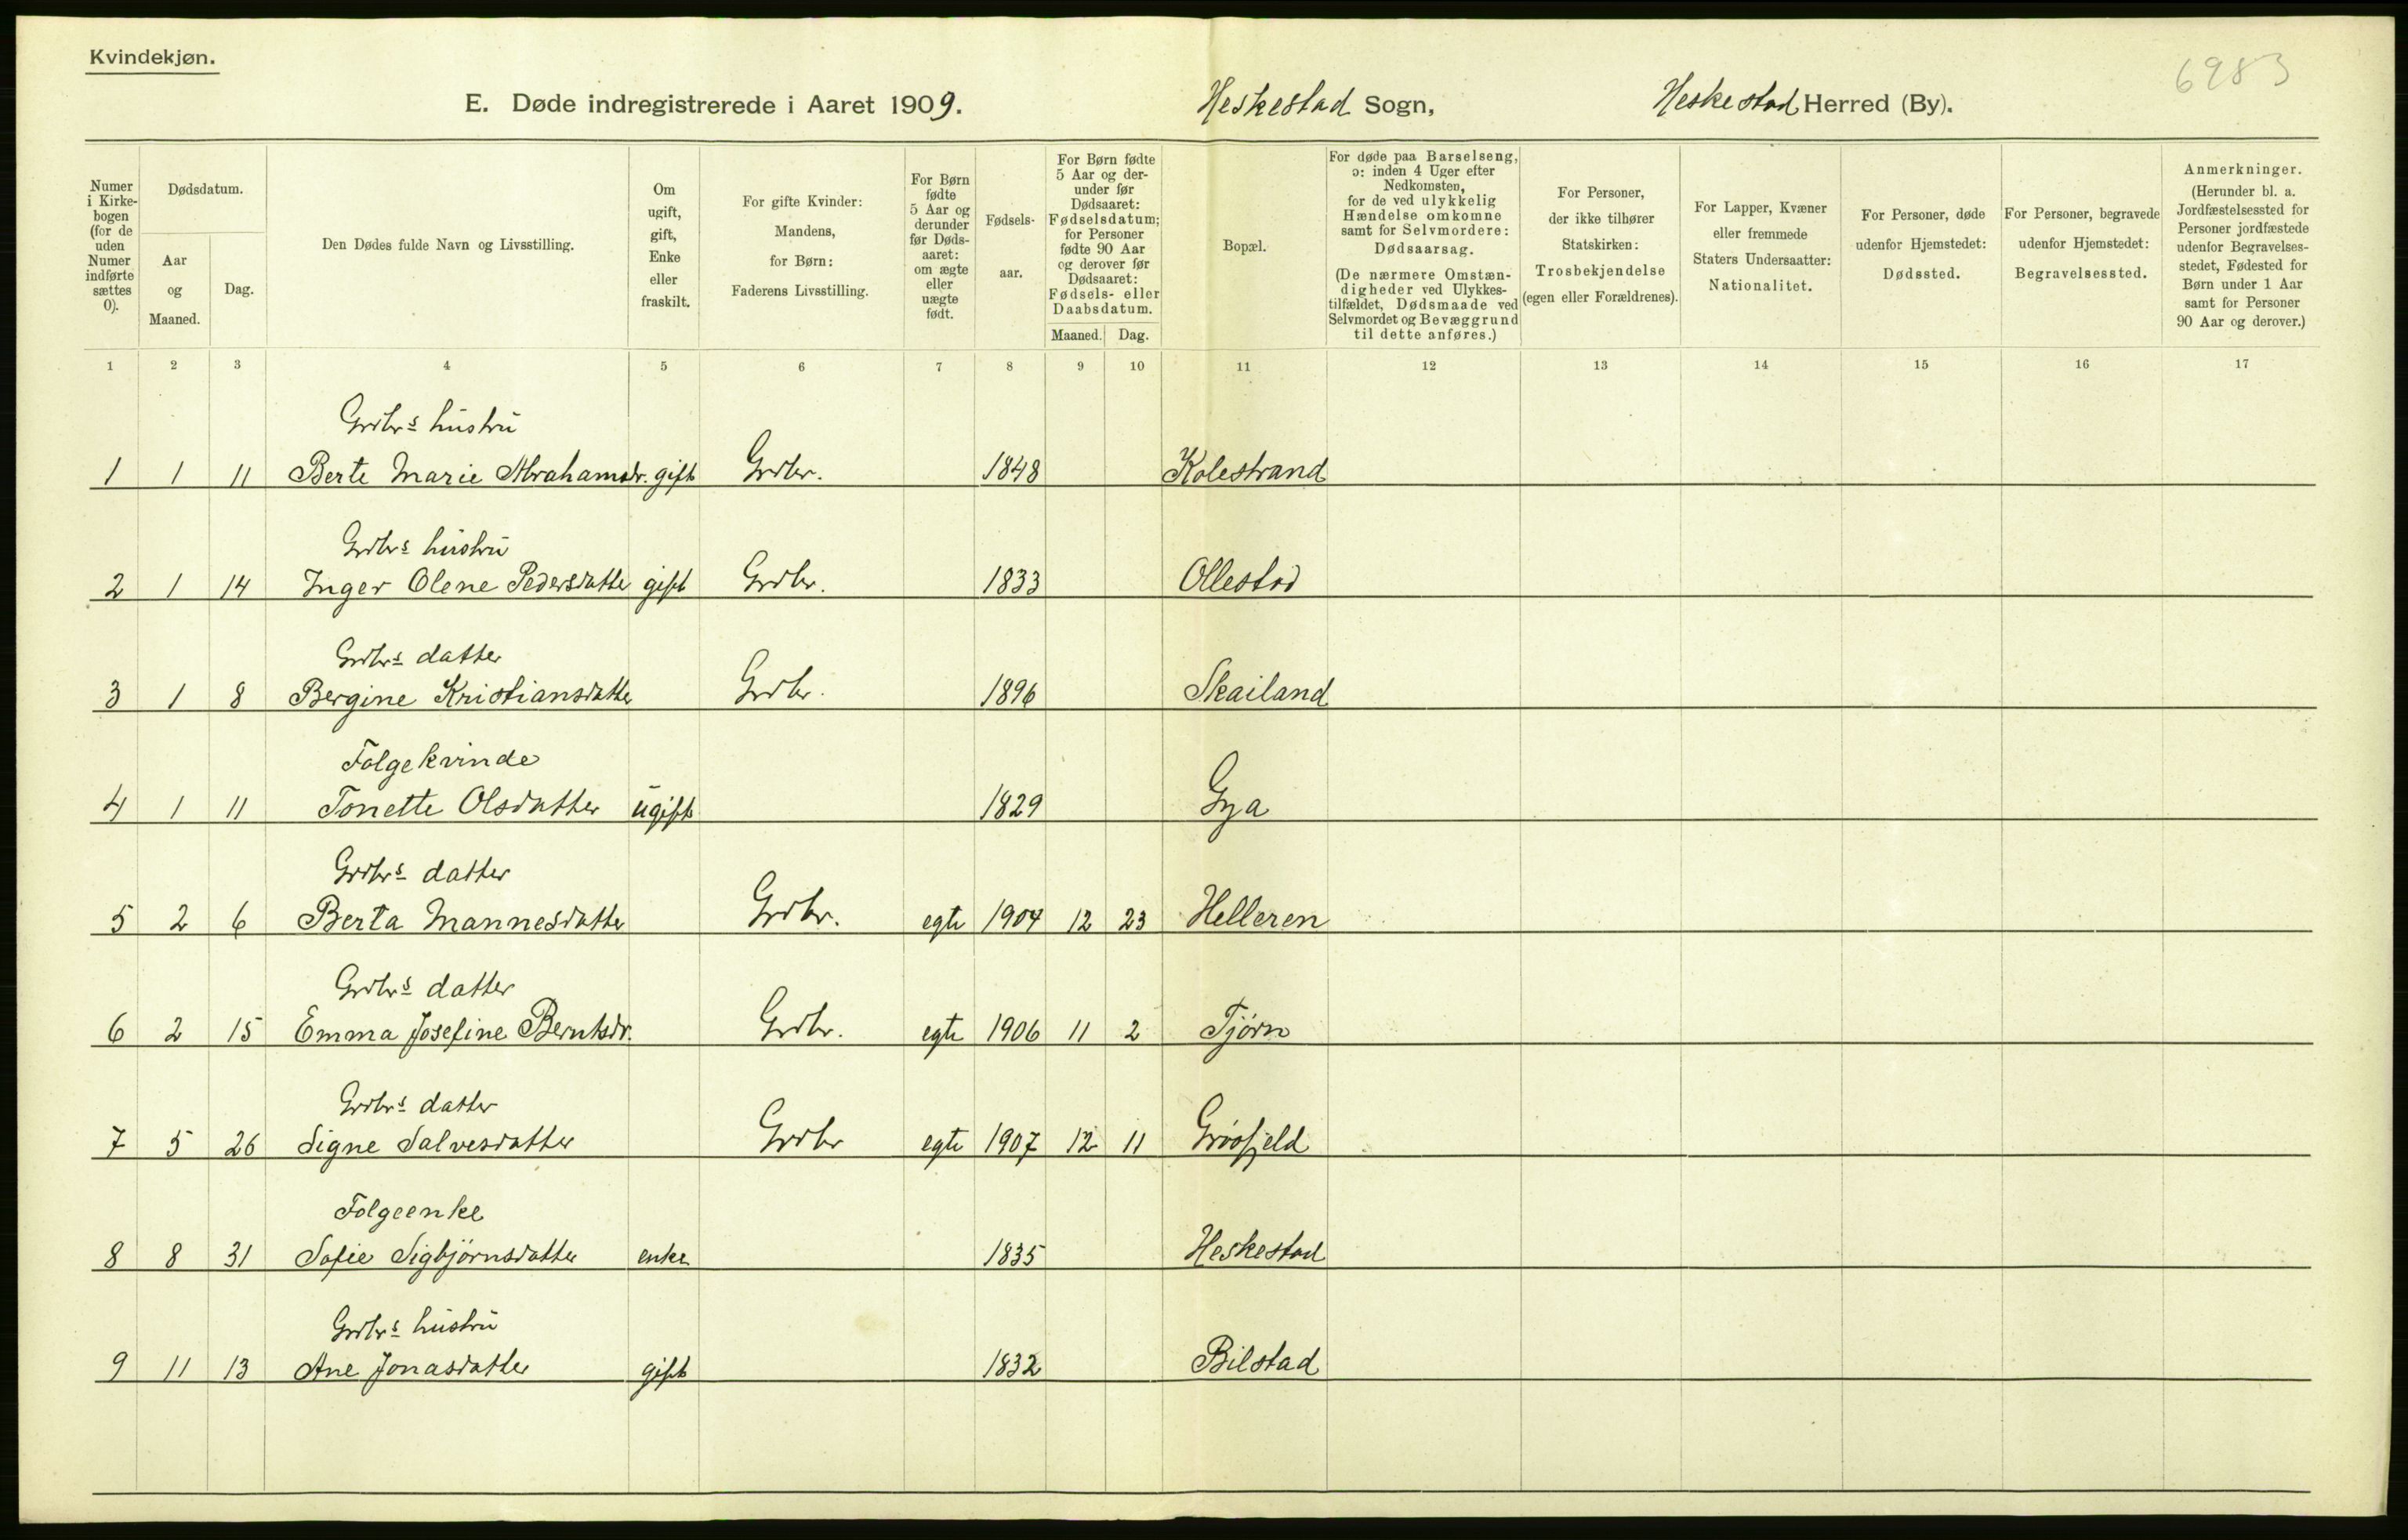 Kvindekjøn.
6983
E. Døde indregistrerede i Aaret 1909. Heskestad Sogn, Heskestad Herred (By).
Numer i Kirkebogen (for de uden Numer indførte sættes 0).
Dødsdatum.
Aar og Maaned.
Dag.
Den Dødes fulde Navn og Livsstilling.
Om ugift, gift, Enke eller fraskilt.
For gifte Kvinder: Mandens, for Børn: Faderens Livsstilling.
For Børn fødte 5 Aar og derunder før Dødsaaret: om ægte eller uægte født.
Fødselsaar.
For Børn fødte 5 Aar og derunder før Dødsaaret: Fødselsdatum; for Personer fødte 90 Aar og derover før Dødsaaret: Fødsels- eller Daabsdatum.
Maaned. Dag.
Bopæl.
For døde paa Barselseng, ɔ: inden 4 Uger efter Nedkomsten, for de ved ulykkelig Hændelse omkomne samt for Selvmordere: Dødsaarsag.
(De nærmere Omstændigheder ved Ulykkestilfældet, Dødsmaade ved Selvmordet og Bevæggrund til dette anføres.)
For Personer, der ikke tilhører Statskirken: Trosbekjendelse (egen eller Forældrenes).
For Lapper, Kvæner eller fremmede Staters Undersaatter: Nationalitet.
For Personer, døde udenfor Hjemstedet: Dødssted.
For Personer, begravede udenfor Hjemstedet: Begravelsessted.
Anmerkninger.
(Herunder bl. a. Jordfæstelsessted for Personer jordfæstede udenfor Begravelsesstedet, Fødested for Børn under 1 Aar samt for Personer 90 Aar og derover.)
1 2 3 4 5 6 7 8 9 10 11 12 13 14 15 16 17
Grdbrs hustru
1 1 11 Berte Marie Abrahamsdr. gift Grdbr. 1848 Kolestrand
Grdbrs hustru
2 1 14 Inger Olene Pedersdatter gift Grdbr. 1833 Ollestad
Grdbrs datter
3 1 8 Bergine Kristiansdatter Grdbr. 1896 Skailand
Folgekvinde
4 1 11 Tonette Olsdatter ugift 1829 Gya
Grdbrs datter
5 2 6 Berta Mannesdatter Grdbr. egte 1904 12 23 Helleren
Grdbrs datter
6 2 15 Emma Josefine Berntsdr. Grdbr. egte 1906 11 2 Tjørn
Grdbrs datter
7 5 26 Signe Salvesdatter Grdbr egte 1907 12 11
Folgeenke
8 8 31 Sofie Sigbjørnsdatter enke 1835 Heskestad
Grdbrs hustru
9 11 13 Ane Jonasdatter gift 1832 Bilstad